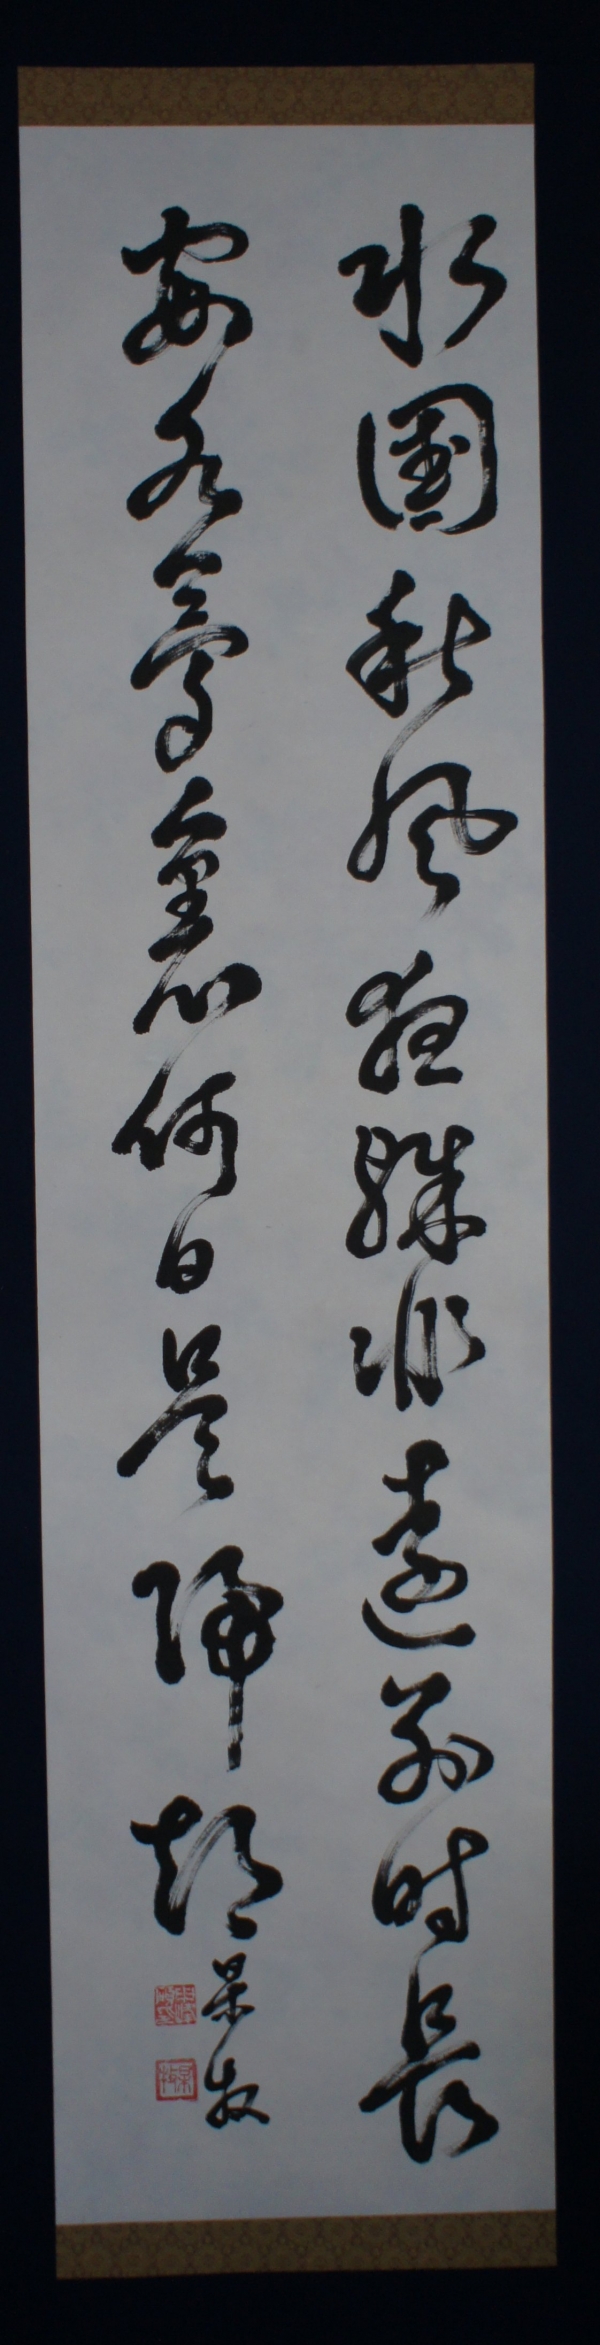 水國秋風夜殊非遠別時長
安如夢裏何日是歸期